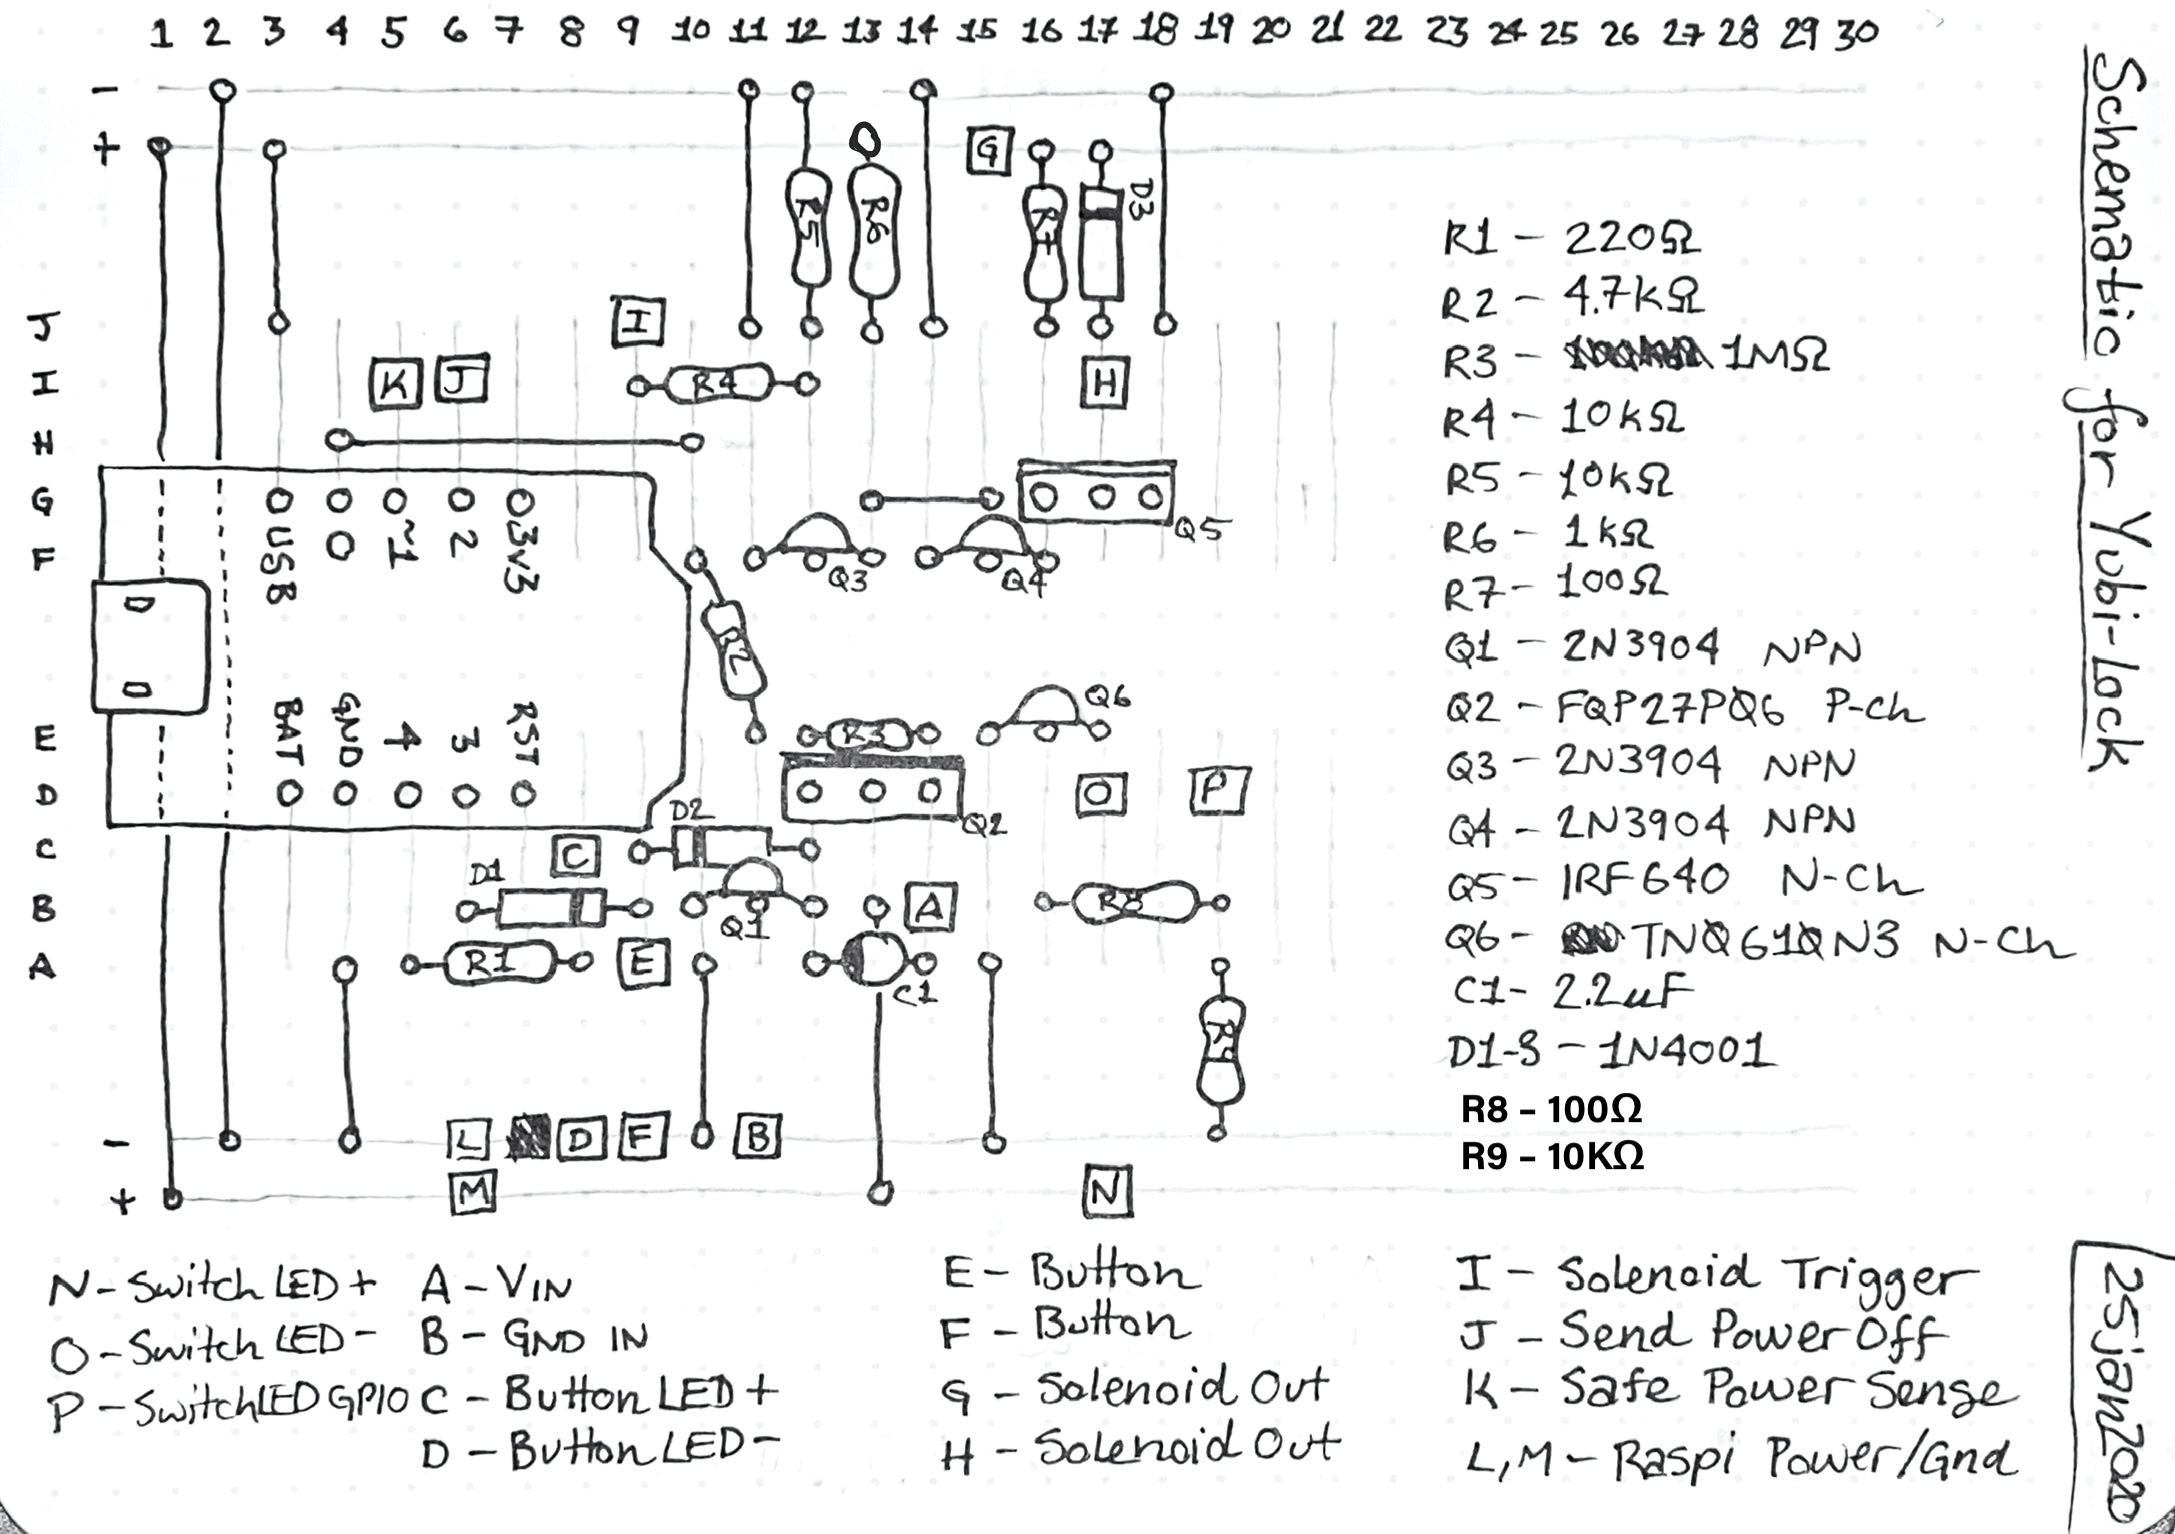 1 2 3 4 5 6 7 8 9 10 11 12 13 14 15 16 17 18 19 20 21 22 23 24 25 26 27 28 29 30
-
+
G
D3
R5
R6
R7
J
I
I
K
J
R4
H
H
G
F
USB
0
~1
2
3v3
Q3
Q4
Q5
R2
BAT
GND
4
3
RST
E
D
C
B
A
R3
Q6
O
P
D2
Q2
C
D1
Q1
A
R8
R1
E
C1
R9
-
L
D
F
B
+
M
N
R1 - 220Ω
R2 - 4.7KΩ
R3 - 1MΩ
R4 - 10KΩ
R5 - 10KΩ
R6 - 1KΩ
R7 - 100Ω
Q1 - 2N3904 NPN
Q2 - FQP27P06 P-Ch
Q3 - 2N3904 NPN
Q4 - 2N3904 NPN
Q5 - IRF640 N-Ch
Q6 - TN0610N3 N-Ch
C1 - 2.2uF
D1-3 - 1N4001
R8 - 100Ω
R9 - 10KΩ
Schematic for Yubi-Lock
25jan2020
N - Switch LED +
O - Switch LED -
P - Switch LED GPIO
A - VIN
B - GND IN
C - Button LED +
D - Button LED -
E - Button
F - Button
G - Solenoid Out
H - Solenoid Out
I - Solenoid Trigger
J - Send Power Off
K - Safe Power Sense
L,M - Raspi Power/Gnd